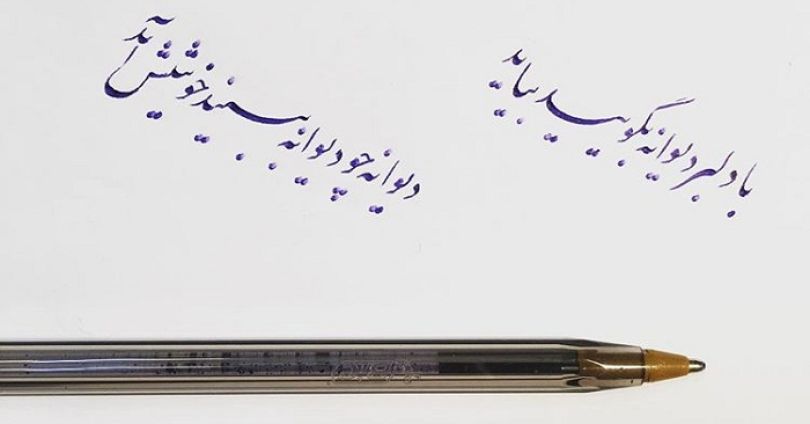 با دلبر دیوانه بگویید بیاید
دیوانه چو دیوانه ببیند خوشش آید